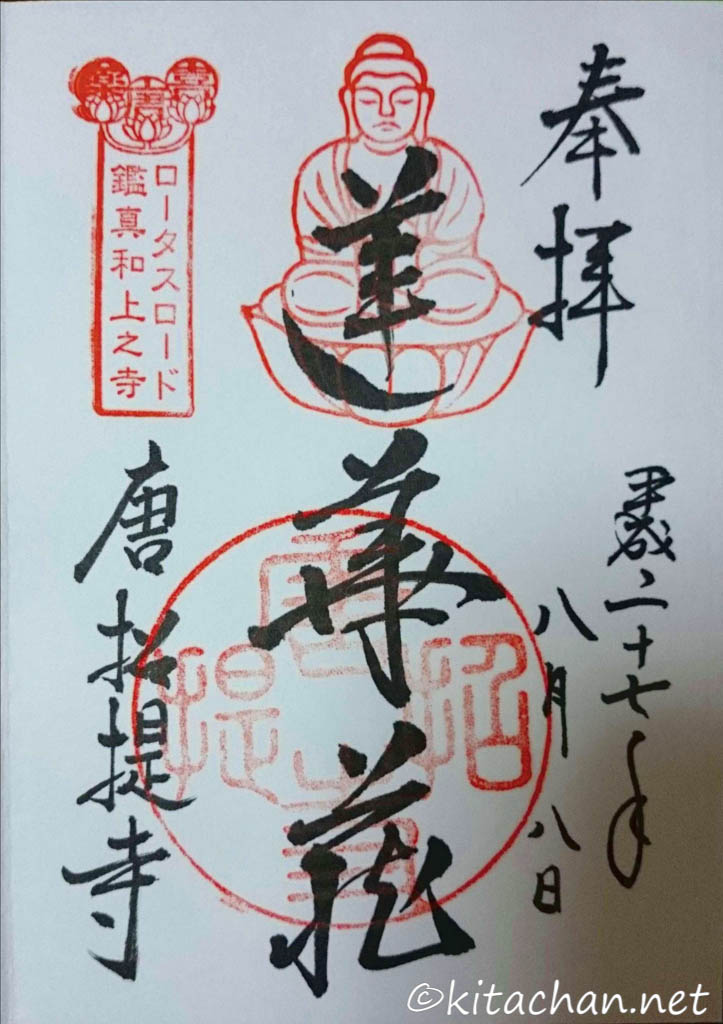 奉拝
平成二十七年
八月八日
蓮華蔵
唐招提寺
ロータスロード
鑑真和上之寺
唐招提寺
©kitachan.net